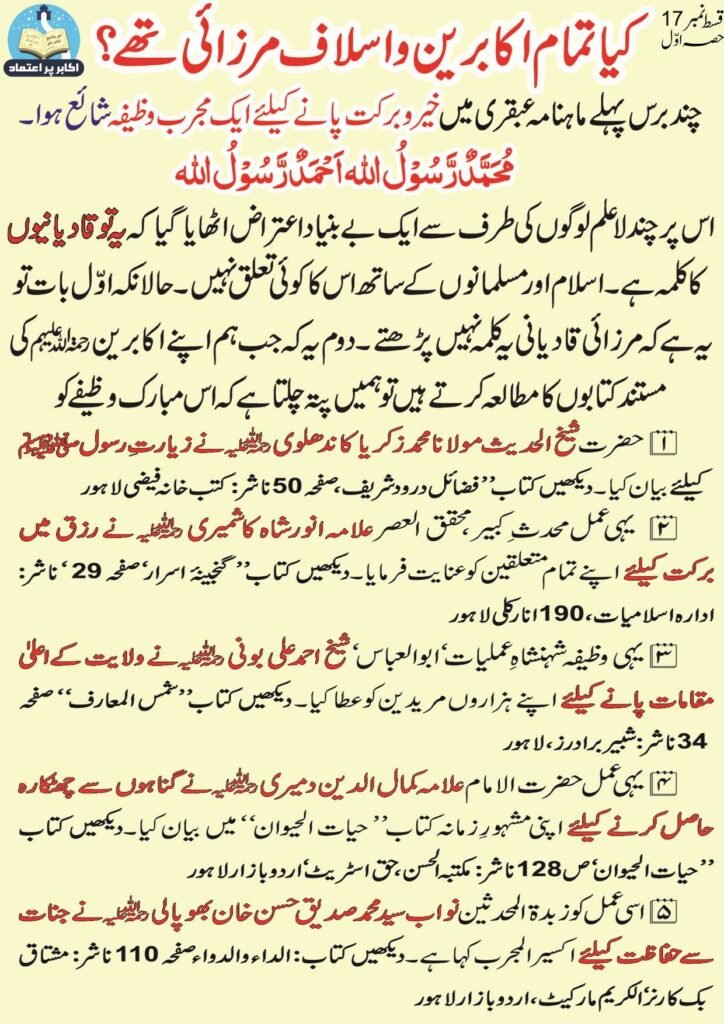 قسط نمبر 17
حصہ اوّل
اکابر پر اعتماد
کیا تمام اکابرین و اسلاف مرزائی تھے؟
چند برس پہلے ماہنامہ عبقری میں خیر و برکت پانے کیلئے ایک مجرب وظیفہ شائع ہوا۔
مُحَمَّدٌ رَّسُوْلُ اللہ اَحْمَدٌ رَّسُوْلُ اللہ
اس پر چند لاعلم لوگوں کی طرف سے ایک بے بنیاد اعتراض اٹھایا گیا کہ یہ تو قادیانیوں
کا کلمہ ہے۔ اسلام اور مسلمانوں کے ساتھ اس کا کوئی تعلق نہیں۔ حالانکہ اوّل بات تو
یہ ہے کہ مرزائی قادیانی یہ کلمہ نہیں پڑھتے۔ دوم یہ کہ جب ہم اپنے اکابرین رحمۃ اللہ علیہم کی
مستند کتابوں کا مطالعہ کرتے ہیں تو ہمیں پتہ چلتا ہے کہ اس مبارک وظیفے کو
۱ حضرت شیخ الحدیث مولانا محمد زکریا کاندھلوی رحمۃ اللہ علیہ نے زیارتِ رسول ﷺ
کیلئے بیان کیا۔ دیکھیں کتاب "فضائل درود شریف، صفحہ 50 ناشر: کتب خانہ فیضی لاہور
۲ یہی عمل محدثِ کبیر، محقق العصر علامہ انور شاہ کاشمیری رحمۃ اللہ علیہ نے رزق میں
برکت کیلئے اپنے تمام متعلقین کو عنایت فرمایا۔ دیکھیں کتاب "گنجینۂ اسرار‘ صفحہ 29 ‘ ناشر:
ادارہ اسلامیات، 190 انارکلی لاہور
۳ یہی وظیفہ شہنشاہِ عملیات‘ ابوالعباس‘ شیخ احمد علی بونی رحمۃ اللہ علیہ نے ولایت کے اعلیٰ
مقامات پانے کیلئے اپنے ہزاروں مریدین کو عطا کیا۔ دیکھیں کتاب "شمس المعارف" صفحہ
34 ناشر: شبیر برادرز، لاہور
۴ یہی عمل حضرت الامام علامہ کمال الدین دمیری رحمۃ اللہ علیہ نے گناہوں سے چھٹکارہ
حاصل کرنے کیلئے اپنی مشہورِ زمانہ کتاب "حیات الحیوان" میں بیان کیا۔ دیکھیں کتاب
"حیات الحیوان‘ ص 128 ناشر: مکتبہ الحسن، حق اسٹریٹ‘ اردو بازار لاہور
۵ اسی عمل کو زبدۃ المحدثین نواب سید محمد صدیق حسن خان بھوپالی رحمۃ اللہ علیہ نے جنات
سے حفاظت کیلئے اکسیر المجرب کہا ہے۔ دیکھیں کتاب: الداء والدواء صفحہ 110 ناشر: مشتاق
بک کارنر‘ الکریم مارکیٹ، اردو بازار لاہور